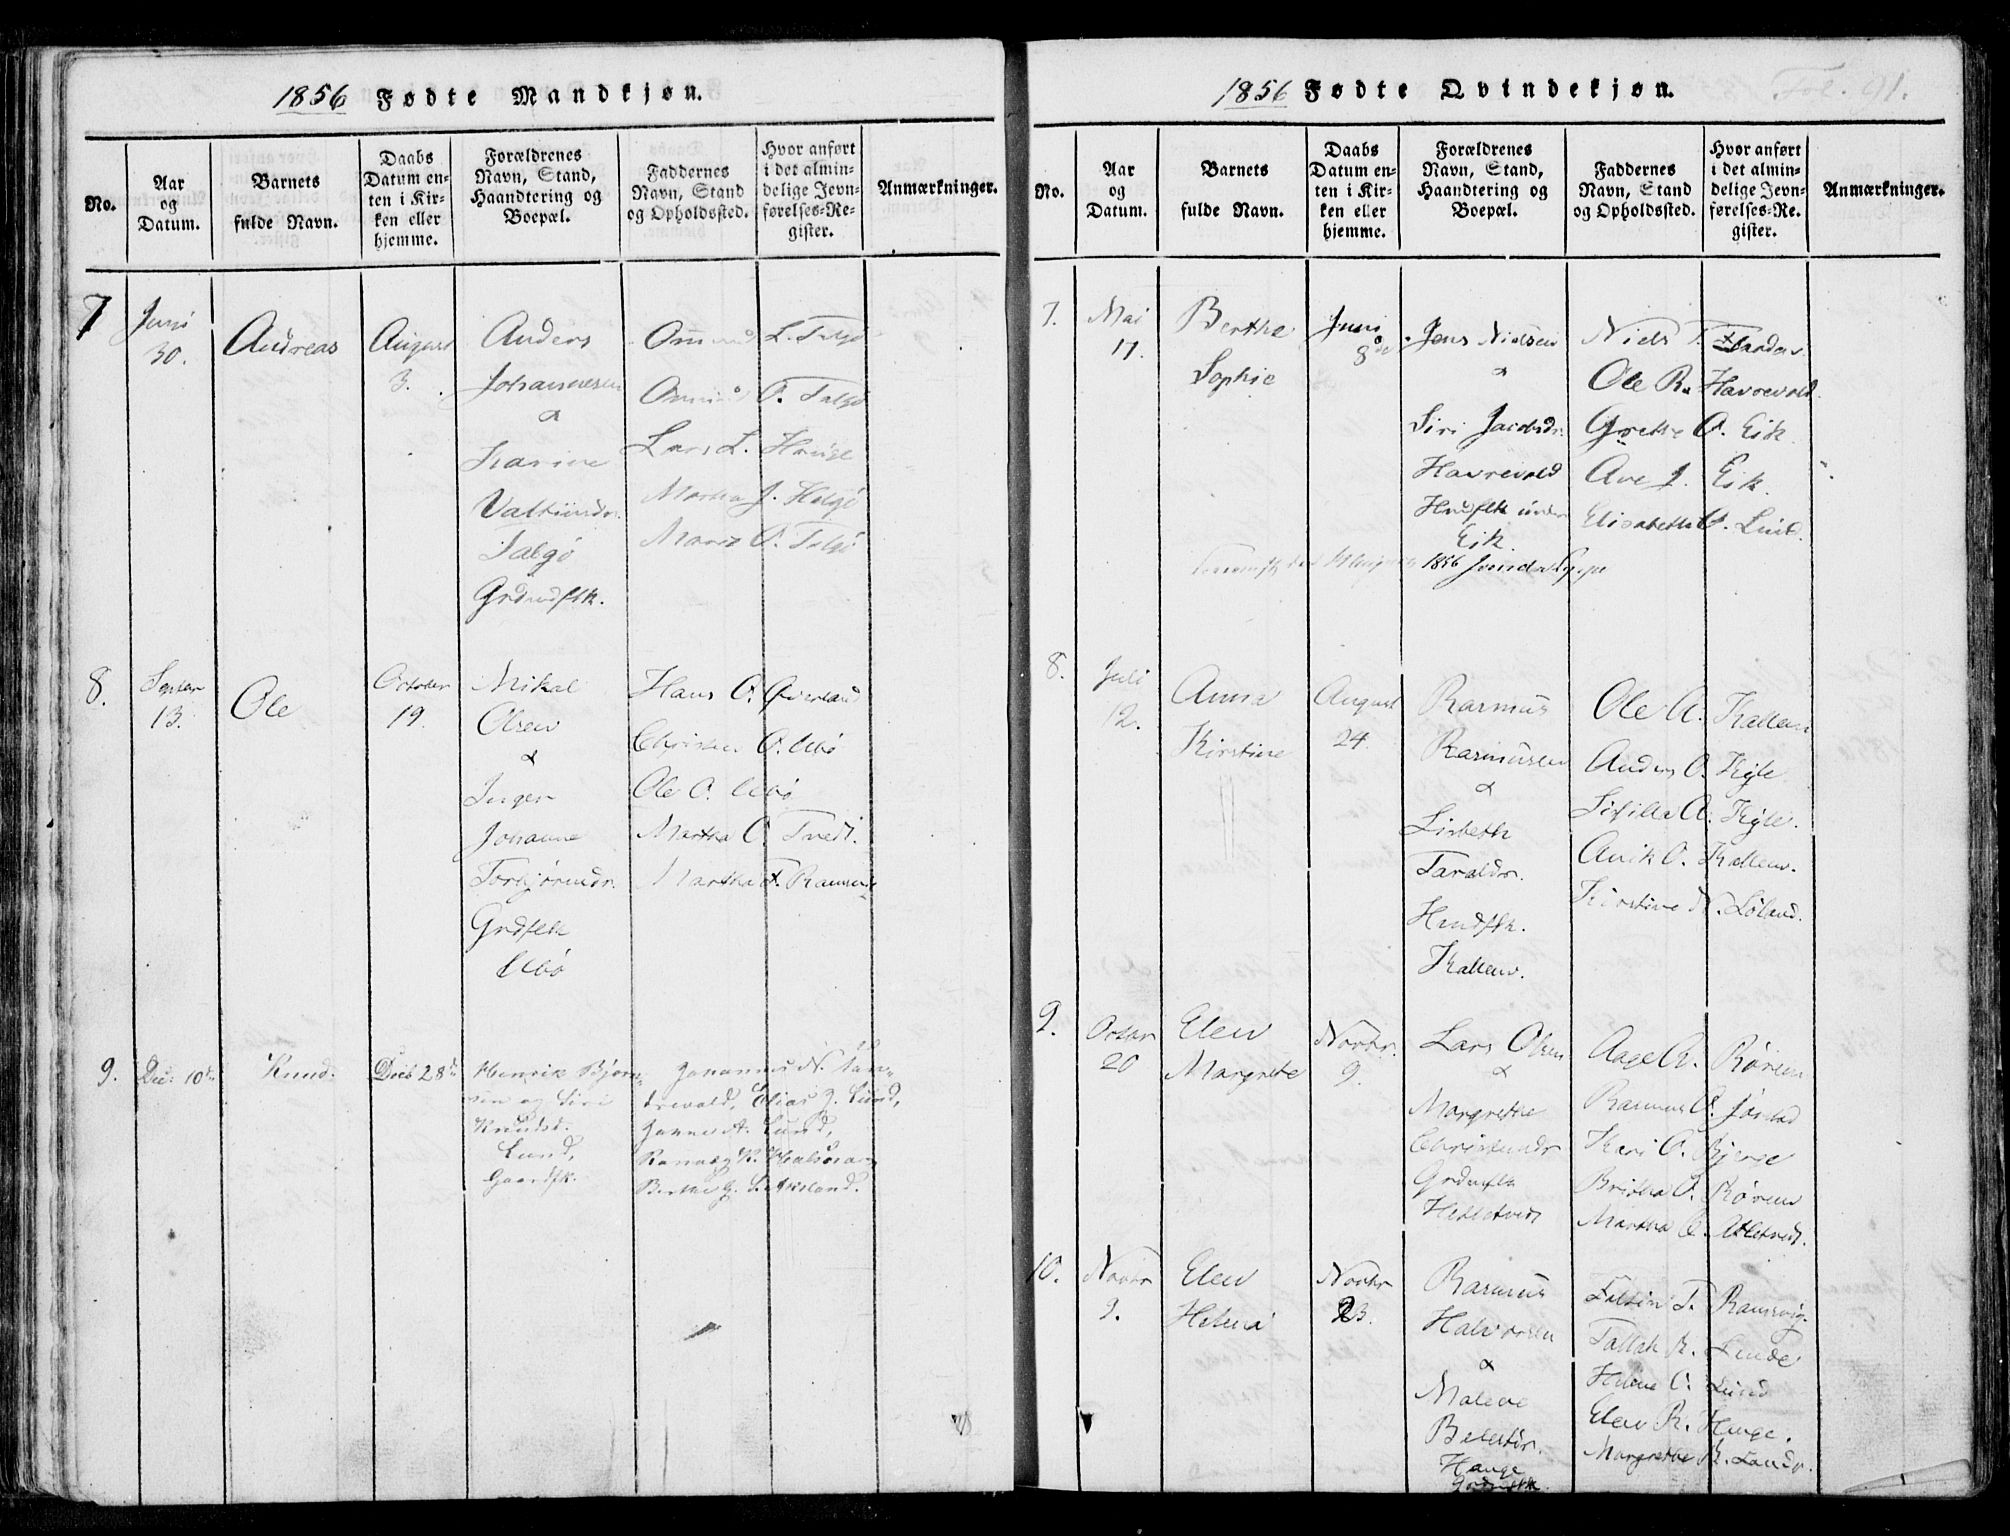 1856 Fødte Mandkjøn.
No.
Aar
og
Datum.
Barnets
fulde Navn.
Daabs
Datum en-
ten i Kir-
ken eller
hjemme.
Forældrenes
Navn, Stand,
Haandtering og
Boepæl.
Faddernes
Navn, Stand
og Opholdssted.
Hvor anført
i det almin-
delige Jevn-
førelses-Re-
gister.
Anmærkninger.
7
Juni
30.
Andreas
August
3.
Anders
Johannesen
&
Karine
Valtinsdr.
Talgø
Grdmdflk.
L. Talgø
O. Talgø
Lars L. Hauge
Martha J. Helgø
O. Talgø
8.
Septbr
13.
Ole
October
19.
Mikal
Olsen
&
Inger
Johanne
Torbjørnsdr.
Grdflk
Ubø
Hans O. Øverland
Christen O. Ubø
Ole O. Ubø
Martha O. Tvedt.
Martha T.
9.
Dec: 10de
Knud.
Decb 28de
Henrik Bjørn-
sen og Siri
Knudsd.
Lund,
Gaardfk.
Johannes N. Hav-
revold, Elias J. Lund,
Lund,
Berthe G.
1856 Fødte Qvindekjøn.
Fol. 91.
No.
Aar
og
Datum.
Barnets
fulde Navn.
Daabs
Datum en-
ten i Kir-
ken eller
hjemme.
Forældrenes
Navn, Stand,
Haandtering og
Boepæl.
Faddernes
Navn, Stand
og Opholdssted.
Hvor anført
i det almin-
delige Jevn-
førelses-Re-
gister.
Anmærkninger.
7.
Mai
17.
Berthe
Sophie
Juni
8de
Jens Nielsen
&
Siri Jacobsdr.
Havrevold
Husflk under
Eik.
Niels T.
Ole R. Havrevold.
Grethe O. Eik.
Ane J. Eik.
Elisabeth O. Lund.
1856
8.
Juli
12.
Anna
Kirstine
August
24.
Rasmus
Rasmusen
&
Lisbeth
Taraldsr.
Husflk.
Kallem.
Ole A. Kallem
Anders O. Kyle
Sifilla A. Kyle.
Anik O. Kallem.
Kirstine N. Løland.
9.
Octbr
20
Elen
Margrete
Novbr.
9.
Lars Olsen
&
Margrethe
Grdmflk
Hetletvedt
Aage A. Røren
Rasmus O. Jøsstad
Kari O. Bjerge
Britha O. Røren
Martha C. Hetletvedt.
10.
Novbr
9.
Elen
Helena
Novbr
23.
Rasmus
Halvorsen
&
Malene
Hauge
Grdmflk.
Faltin T. Ramsvig.
Tallak R. Linde
Helene O. Lund
Elen R. Hauge.
Margrethe R.